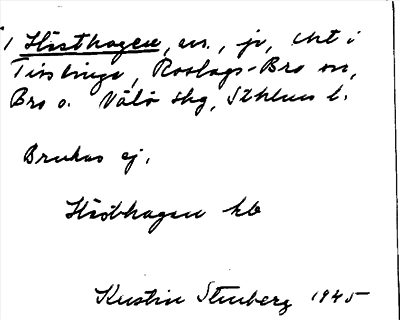 1 Hästhagen, en., jo, cht i
Tisslinge, Roslags-Bro sn,
Bro o. Vätö skg, Sthlms l.
Brukas ej.
Hästhagen kb
Kerstin Stenberg 1945